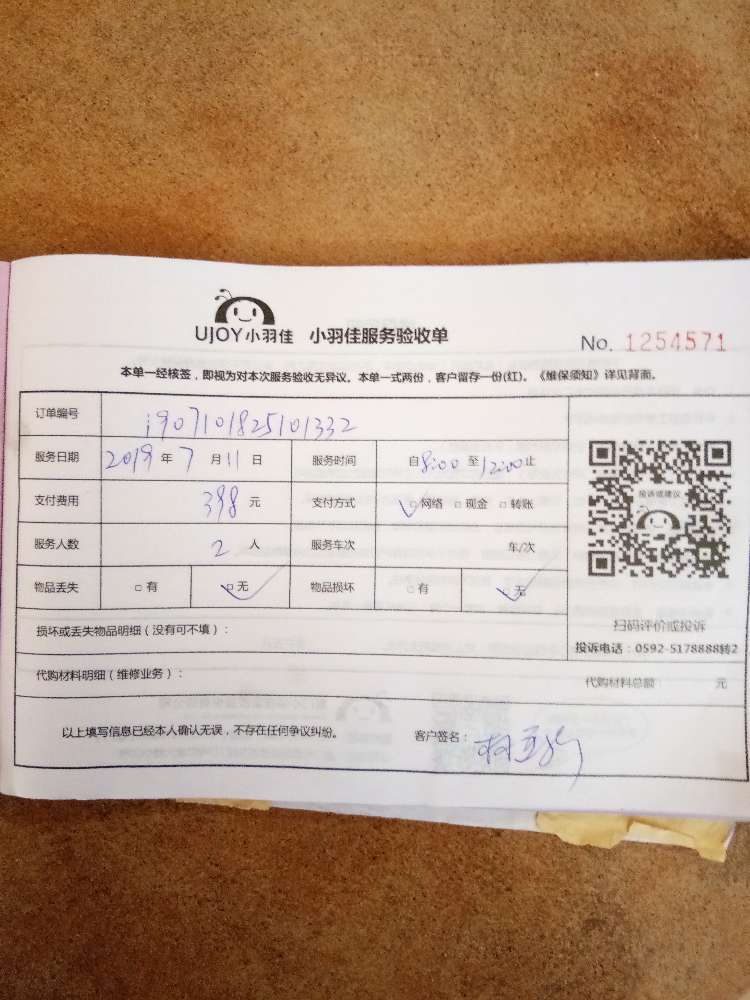 UJOY小羽佳 小羽佳服务验收单
No. 1254571
本单一经核签，即视为对本次服务验收无异议。本单一式两份，客户留存一份(红)。《维保须知》详见背面。
订单编号 1907101825101332
服务日期 2019年7月11日 服务时间 自8:00至12:00止
支付费用 398元 支付方式 □网络 □现金 □转账
服务人数 2人 服务车次 车/次
物品丢失 □有 □无 物品损坏 □有 □无
投诉或建议
扫码评价或投诉
投诉电话：0592-5178888转2
损坏或丢失物品明细（没有可不填）：
代购材料明细（维修业务）： 代购材料总额 元
以上填写信息已经本人确认无误，不存在任何争议纠纷。 客户签名：